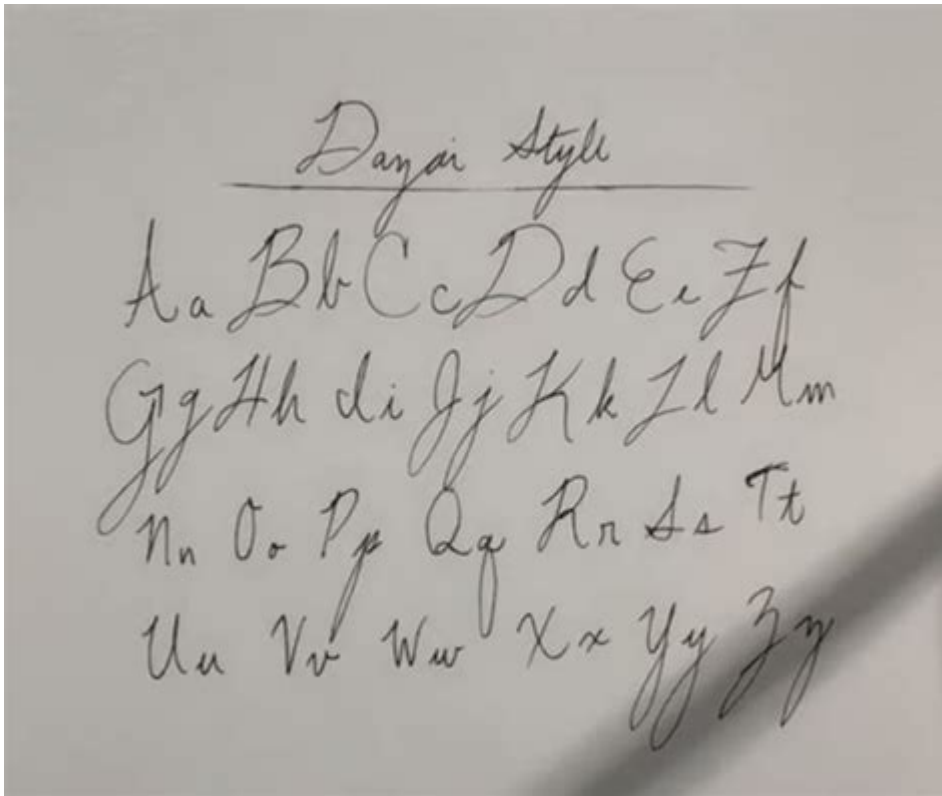 Style
Aa Bb Cc Dd Ee Ff
Gg Hh Ii Jj Kk Ll Mm
Nn Oo Pp Qq Rr Ss Tt
Uu Vv Ww Xx Yy Zz